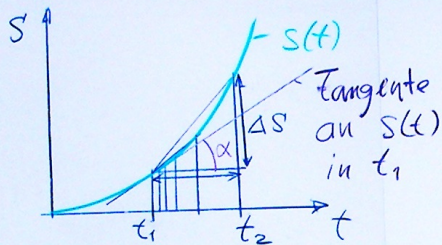 S
s(t)
Tangente
an s(t)
in t₁
Δs
α
t₁
t₂
t